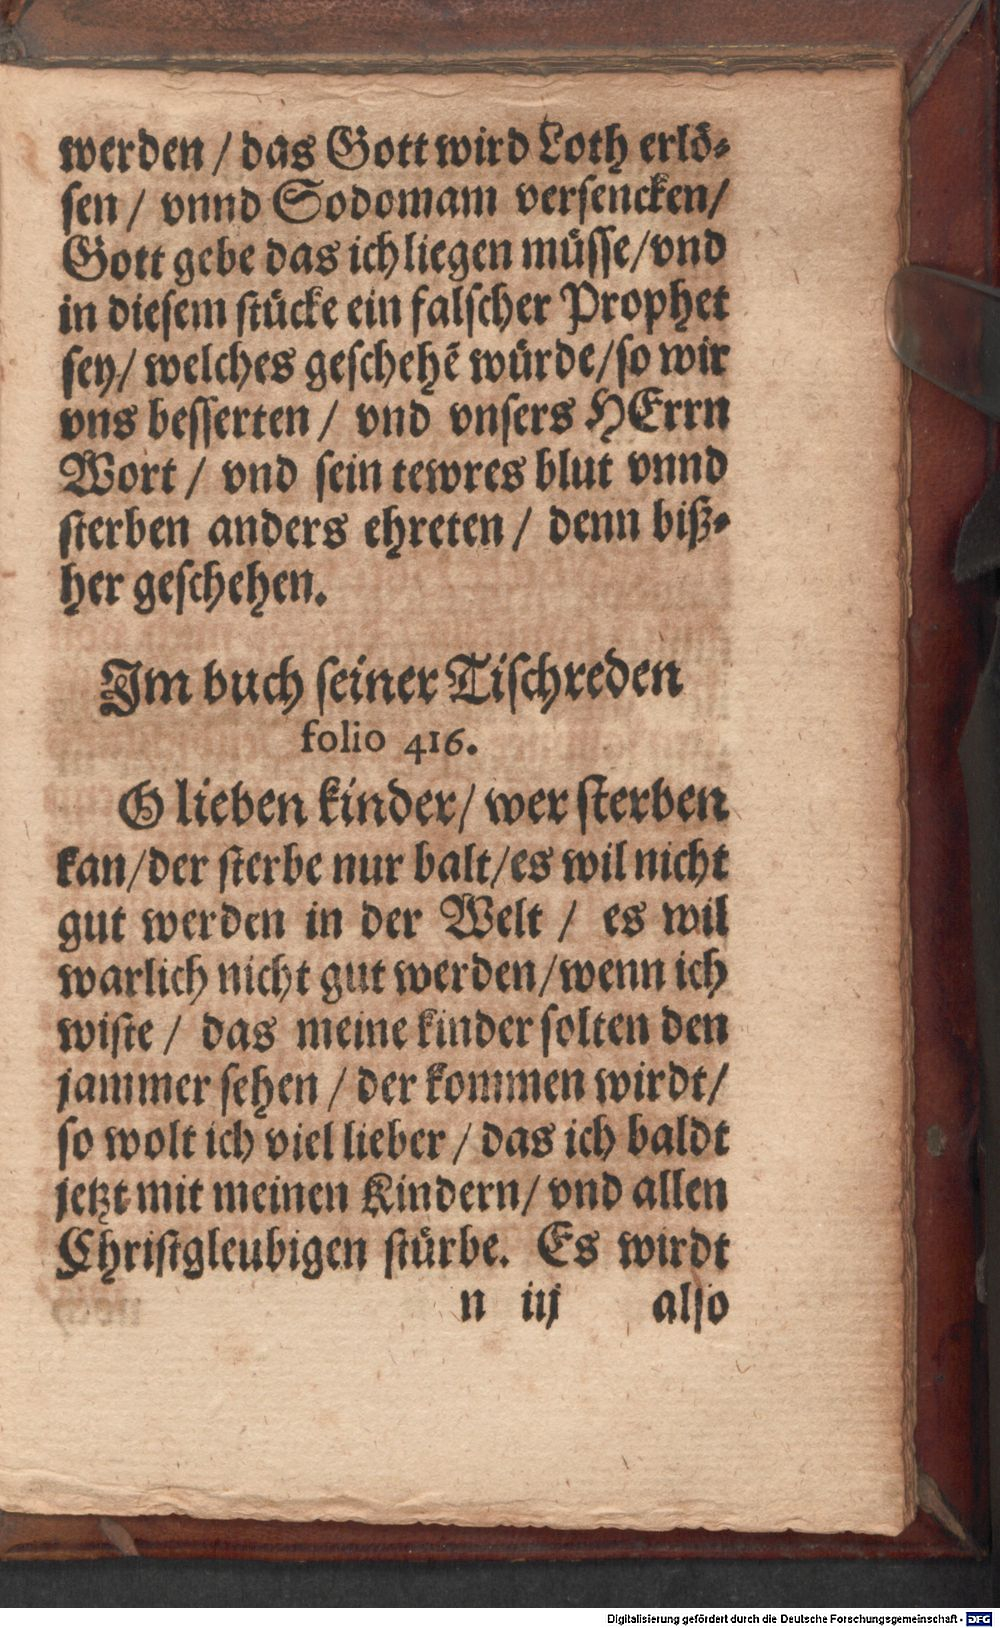 werden / das Gott wird Loth erlö⸗
sen / vnnd Sodomam versencken/
Gott gebe das ich liegen müsse/vnd
in diesem stücke ein falscher Prophet
sey/ welches geschehē würde/so wir
vns besserten / vnd vnsers HErrn
Wort / vnd sein tewres blut vnnd
sterben anders ehreten / denn biß⸗
her geschehen.
Im buch seiner Tischreden
folio 416.
O lieben kinder/ wer sterben
kan/der sterbe nur balt/es wil nicht
gut werden in der Welt / es wil
warlich nicht gut werden/wenn ich
wiste / das meine kinder solten den
jammer sehen / der kommen wirdt/
so wolt ich viel lieber / das ich baldt
jetzt mit meinen Kindern/ vnd allen
Christgleubigen stürbe. Es wirdt
n iij also
Digitalisierung gefördert durch die Deutsche Forschungsgemeinschaft - DFG